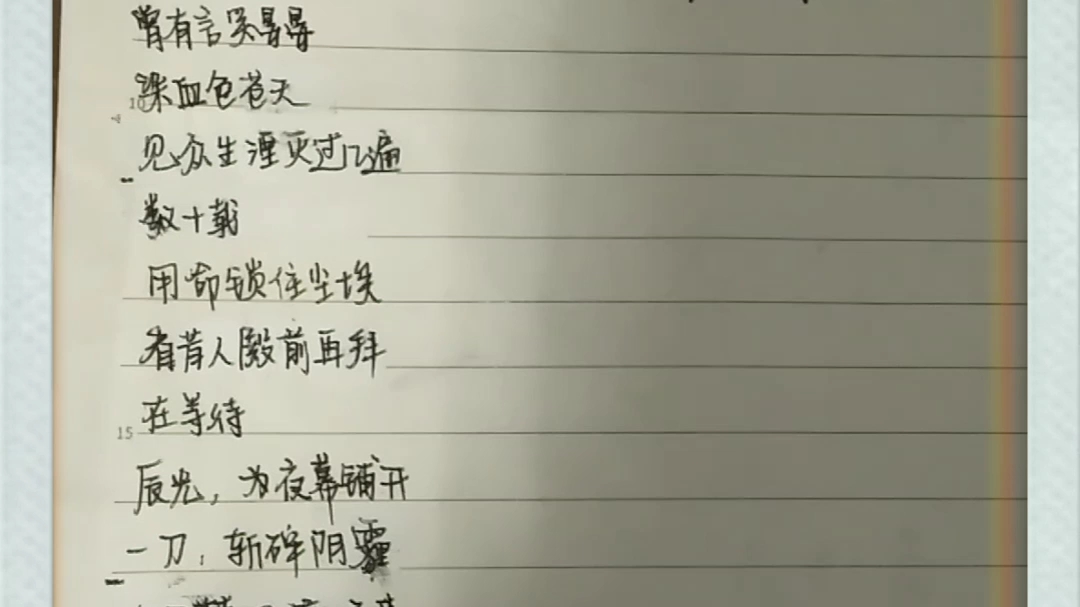 曾有言笑晏晏
染血色苍天
10
见众生湮灭过几遍
数十载
用命锁住尘埃
看昔人殿前再拜
在等待
15
辰光，为夜幕铺开
一刀，斩碎阴霾